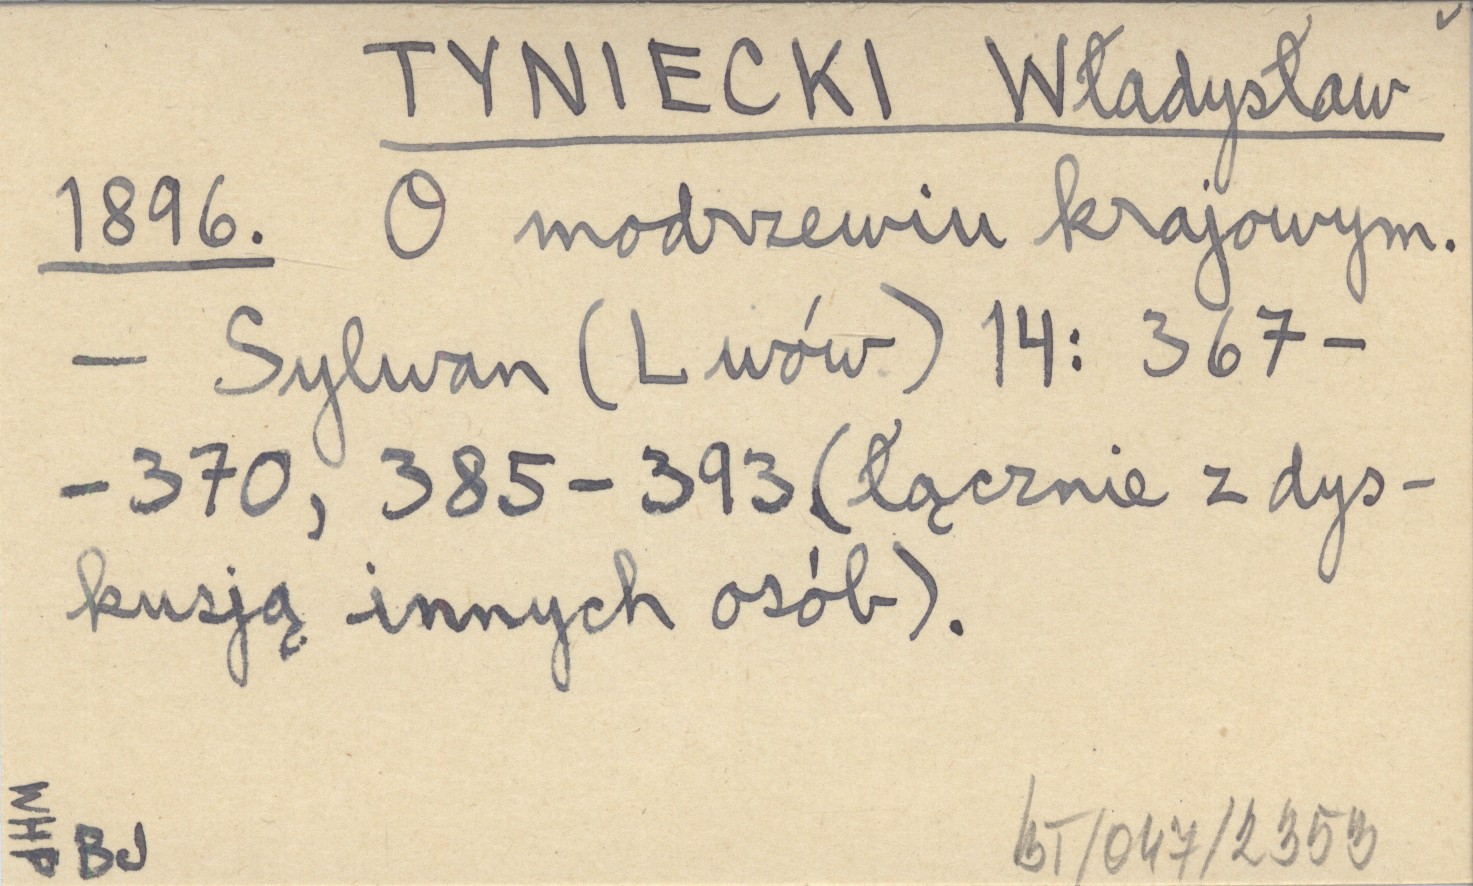 TYNIECKI Władysław
1896. O modrzewiu krajowym.
— Sylwan (Lwów) 14: 367-
-370, 385-393 (łącznie z dys-
kusją innych osób).
WHP
BJ
BT/047/2353